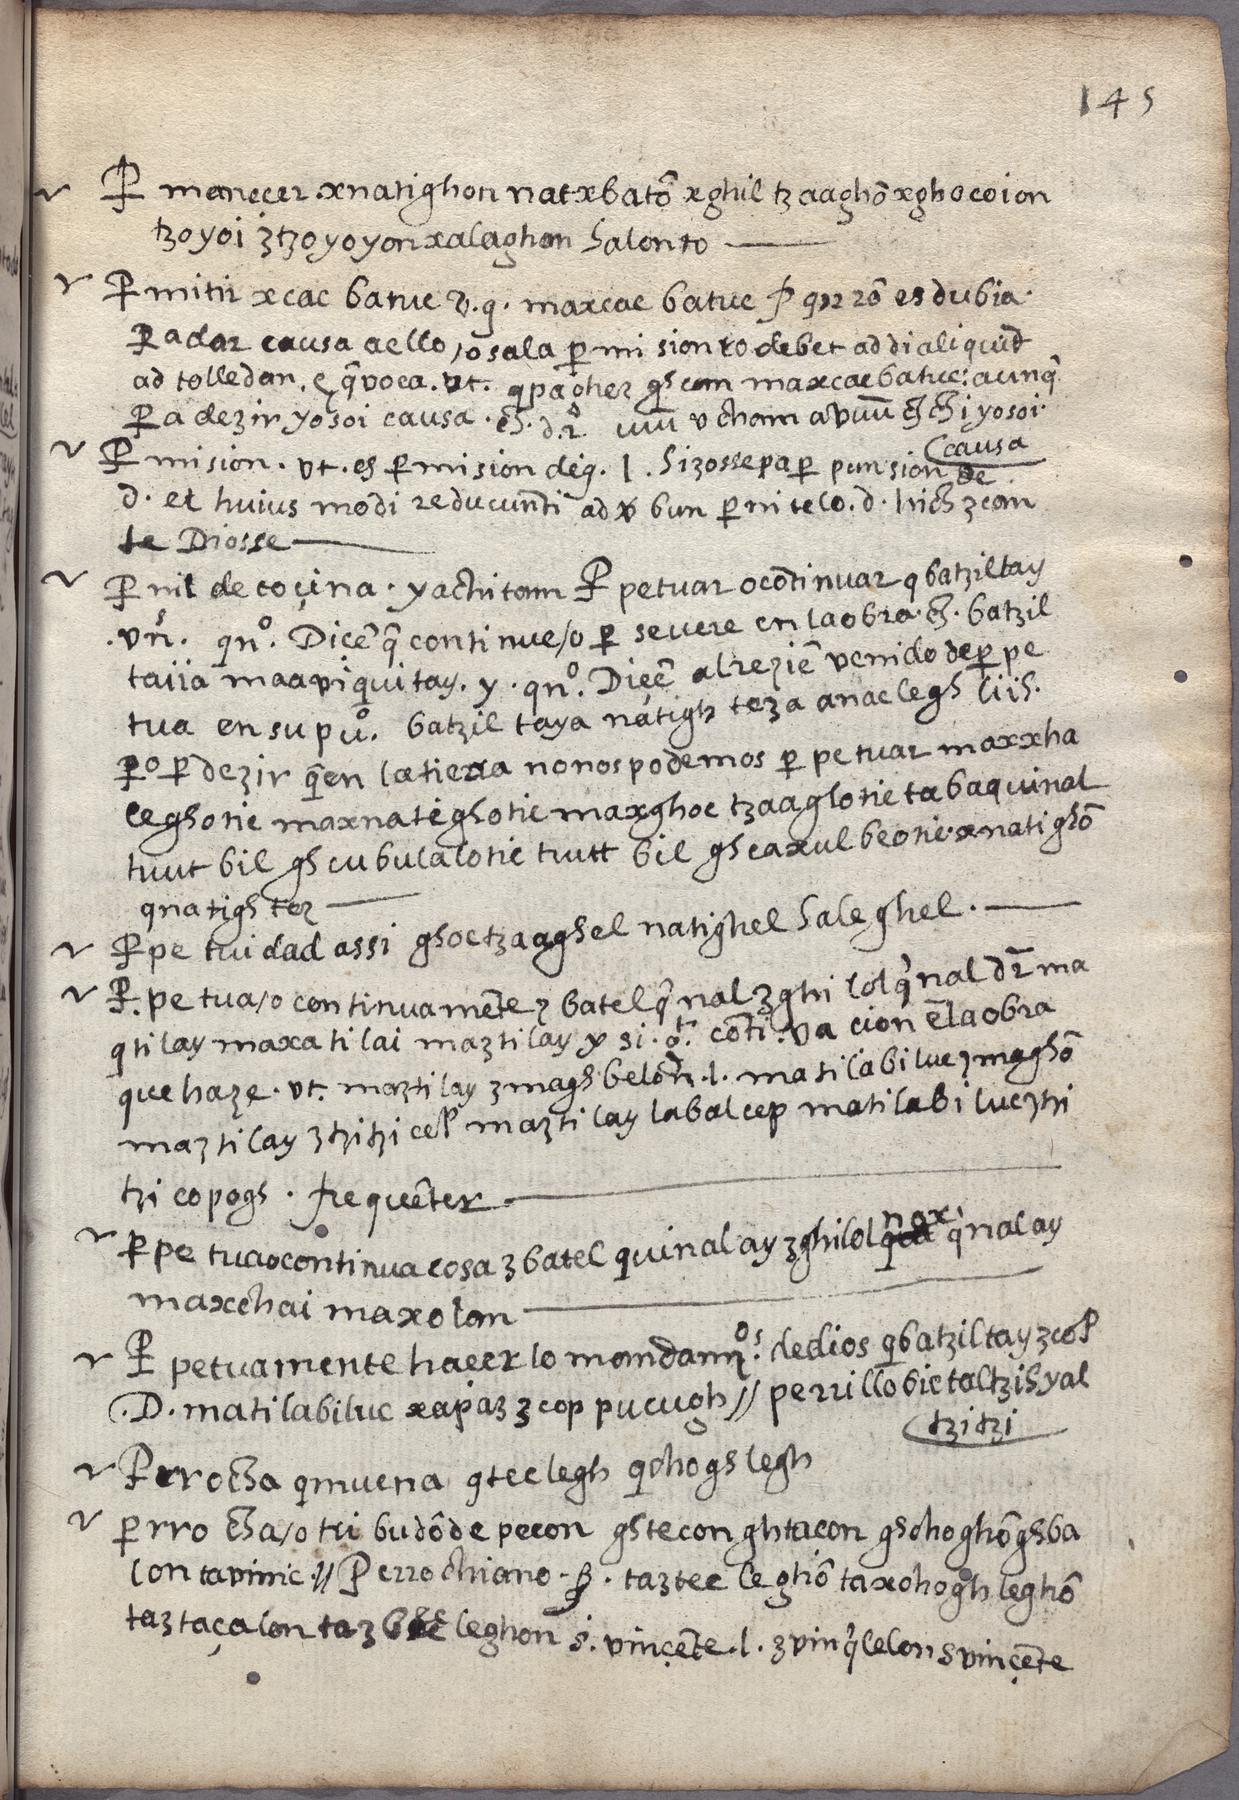 145
Ꝑ manecer. xnatighon natxbatō xghil tzaaghō xghocoion
tzoyoi ztzoyoyon xalaghan halonto
Ꝑmitir xcac batuc v.g. maxcac batuc es dubia.
ꝑa dar causa aello, o sala ꝑmi sion to debet addi aliquid
ad tolledan. vt. maxcac batuc: aunq̃
ꝑa dezir yo soi causa. vcham yo soi.
(causa
Ꝑmision. vt. es ꝑmision deig. l. hizosse pa ꝑ punsion de
d. et huius modi reducunti ad bun ꝑmitelo. d. hich z con
te Diosse
ꝑnil de coçina. yachitam Ꝑpetuar o cõtinuar q batziltay
.vr̃. qnº. Diçẽ q̃ continue, o ꝑ severe en la obra. ch. batzil
taiia maavi quitay. y. qnº. Diçẽ al rezie venido de ꝑpe
tua en su puº. batzil taya natigh teza anaclegh liih.
ꝑo ꝑ dezir q̃ en la tierra no nos podemos ꝑpetuar maxxha
leghotic maxnateghotic maxghoc tzaaglotic tabaquinal
tuut bil gh cu bulalotic tuut bil gh caxulbeotic. xnatighō
qnatigh tez
Ꝑpe tui dad assi ghoctzaaghel natighel haleghel.
Ꝑ.pe tua, o continuamẽte z batel q̃nal z ghi lol q̃nal dr̃ ma
qtilay maxatilai maztilay y si. cõti. va cion ẽ la obra
que haze. vt. maztilay z magh belon .l. matilabiluc z maghō
maztilay ztzitzi cep maztilay labal cep matilabiluc ztzi
tzi copogh. frequẽter
ꝑpe tua o continua cosa z batel quinalay z ghilol nax. q̃nalay
maxchai maxolan
Ꝑpetuamente haçer lo mandamos. de dios q batziltay z cop
.D. matilabiluc xapaz z cop pucugh // perrillo bic taltzih yal
(tzitzi
Perrocha qmuena gteclegh qchogh legh
ꝑrrocha, o tri budō de pecon ghtecon ghtacon ghchoghō ghba
lon tavinic // Perrochiano. taztec leghō taxchogh leghō
taztaçalon taz leghon S. vinçẽte .l. zvin q̃lelon S vinçẽte